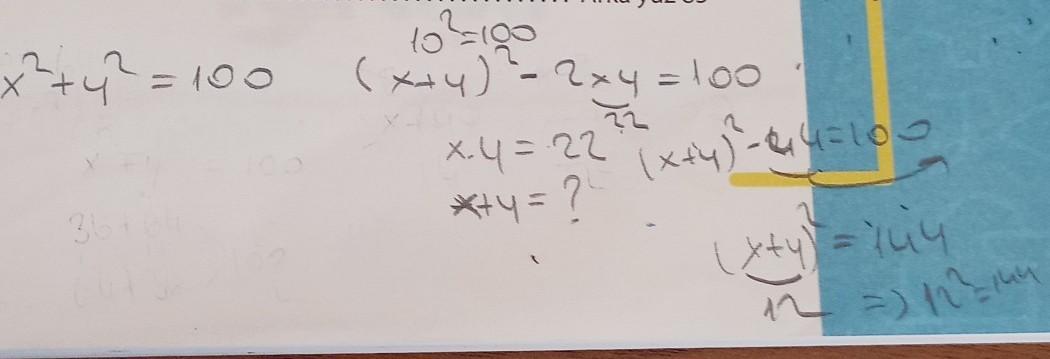 10²=100
x²+y²=100 (x+y)²-2xy=100
22
x.y=22 (x+y)²-44=100
x+y=?
(x+y)²=144
12 => 12²=144